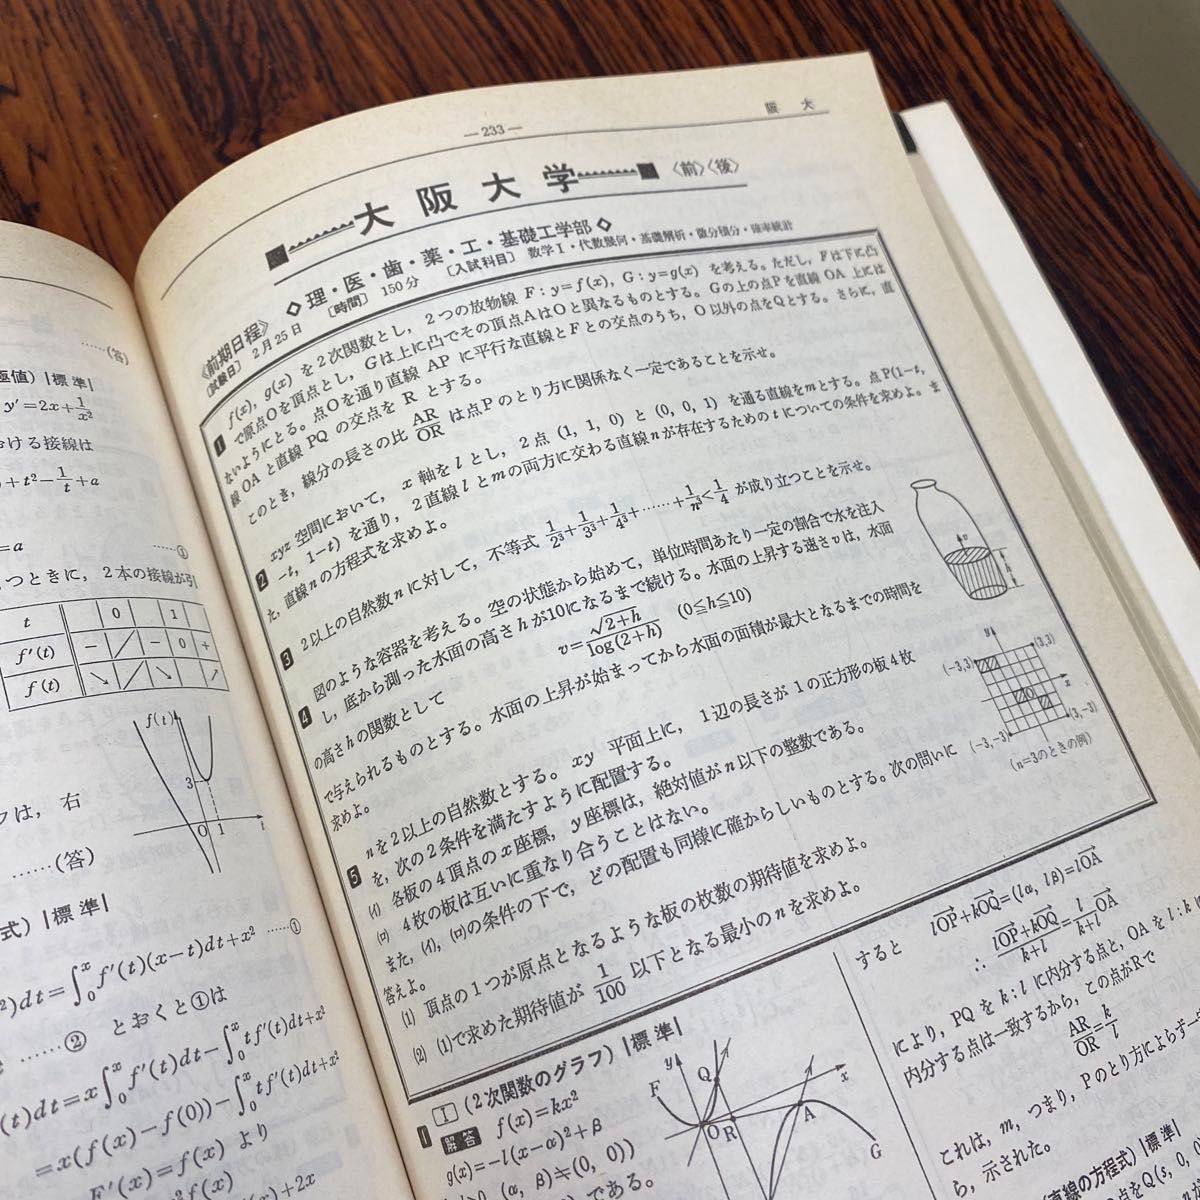 — 233 —
阪 大
大 阪 大 学
〈前〉〈後〉
◇ 理・医・歯・薬・工・基礎工学部 ◇
《前期日程》
〔試験日〕 2月25日 〔時間〕 150分 〔入試科目〕 数学Ⅰ・代数幾何・基礎解析・微分積分・確率統計
1 f(x), g(x) を2次関数とし, 2つの放物線 F : y=f(x), G : y=g(x) を考える。ただし, Fは下に凸
で原点Oを頂点とし, Gは上に凸でその頂点AはOと異なるものとする。Gの上の点Pを直線 OA 上には
ないようにとる。点Oを通り直線 AP に平行な直線とFとの交点のうち, O以外の点をQとする。さらに, 直
線 OA と直線 PQ の交点を R とする。
このとき, 線分の長さの比 AR/OR は点Pのとり方に関係なく一定であることを示せ。
2 xyz 空間において, x 軸を l とし, 2点 (1, 1, 0) と (0, 0, 1) を通る直線を m とする。点 P(1−t,
−t, 1−t) を通り, 2直線 l と m の両方に交わる直線 n が存在するための t についての条件を求めよ。ま
た, 直線 n の方程式を求めよ。
3 2以上の自然数 n に対して, 不等式 1/2³+1/3³+1/4³+……+1/n³<1/4 が成り立つことを示せ。
4 図のような容器を考える。空の状態から始めて, 単位時間あたり一定の割合で水を注入
し, 底から測った水面の高さ h が10になるまで続ける。水面の上昇する速さ v は, 水面
の高さ h の関数として
v=√2+h/log(2+h) (0≦h≦10)
で与えられるものとする。水面の上昇が始まってから水面の面積が最大となるまでの時間を
求めよ。
v
h
5 n を2以上の自然数とする。xy 平面上に, 1辺の長さが 1 の正方形の板4枚
を, 次の2条件を満たすように配置する。
(イ) 各板の4頂点の x 座標, y 座標は, 絶対値が n 以下の整数である。
(ロ) 4枚の板は互いに重なり合うことはない。
また, (イ), (ロ)の条件の下で, どの配置も同様に確からしいものとする。次の問いに
答えよ。
(1) 頂点の1つが原点となるような板の枚数の期待値を求めよ。
(2) (1)で求めた期待値が 1/100 以下となる最小の n を求めよ。
y
(−3,3)
(3,3)
x
O
(−3,−3)
(3,−3)
(n=3のときの例)
1 Ⅰ (2次関数のグラフ) |標準|
解答 f(x)=kx²
g(x)=−l(x−α)²+β
(α, β)≒(0, 0))
である。
F
y
Q
x
O
R
A
G
すると lOP+kOQ=(lα, lβ)=lOA
∴ lOP+kOQ/k+l=l/k+l OA
により, PQ を k : l に内分する点と, OA を l : k に
内分する点は一致するから, この点がRで
AR/OR=k/l
これは, m, つまり, Pのとり方によらず一
ら, 示された。
直線の方程式) |標準|
……(答)
極値) |標準|
y′=2x+1/x²
おける接線は
+t²−1/t+a
=a ……①
つときに, 2本の接線が引
t 0 1
f′(t) − ╱ − 0 +
f(t) ↘ ╱ ↘ ↗
f(t)
3
O
1
t
フは, 右
……(答)
式) |標準|
²)dt=∫₀ˣf′(t)(x−t)dt+x² ……①
……② とおくと①は
(t)dt=x∫₀ˣf′(t)dt−∫₀ˣtf′(t)dt+x²
=x(f(x)−f(0))−∫₀ˣtf′(t)dt+x²
F′(x)=f(x) より